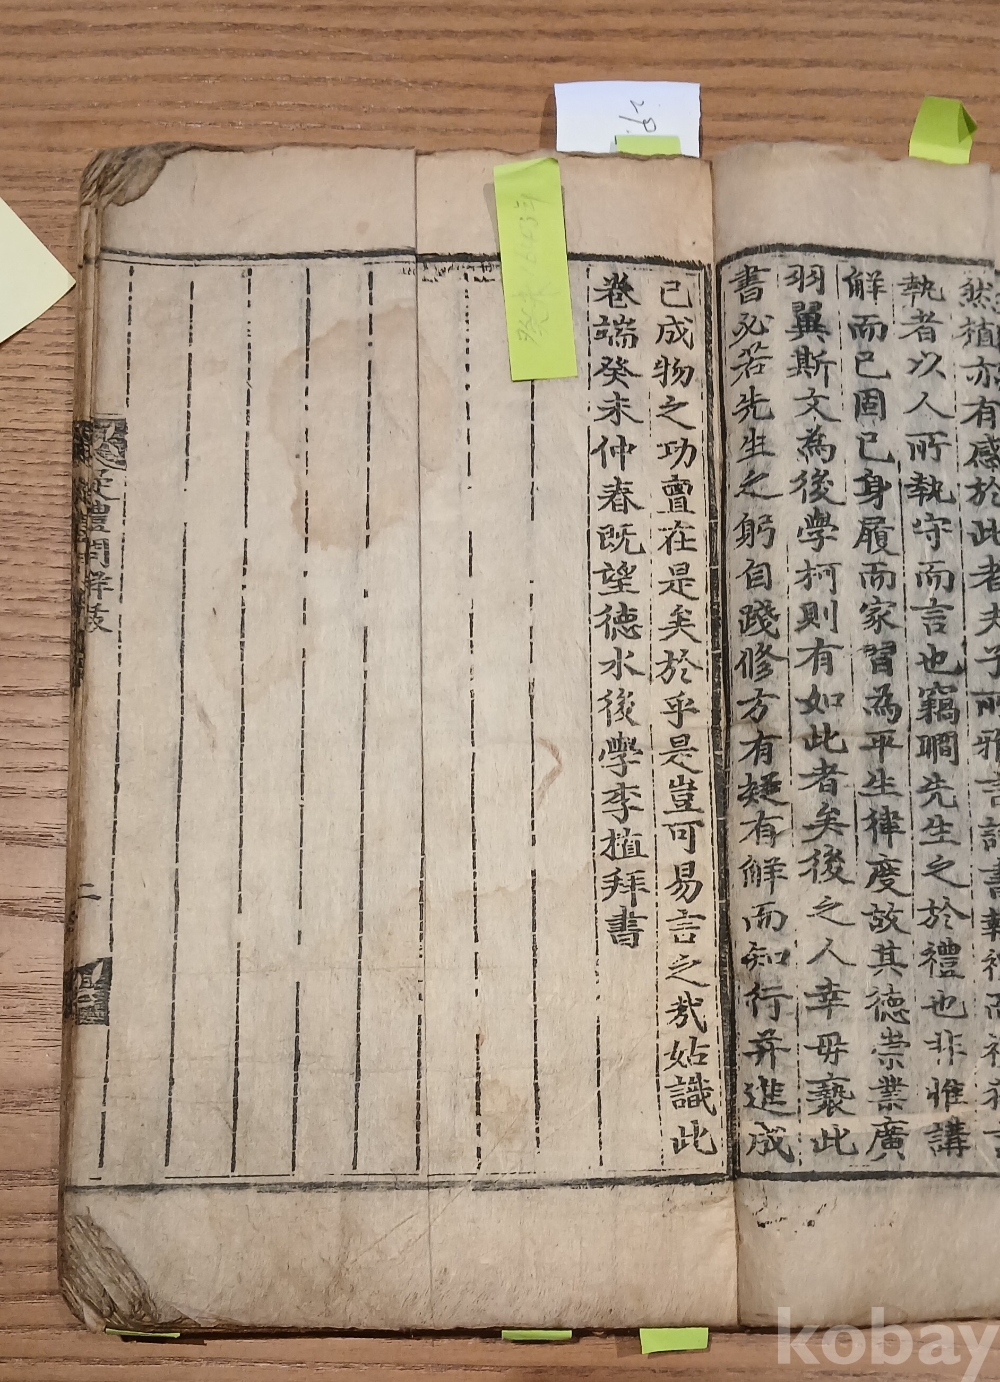 然植亦有感於此者夫子所雅言詩書執禮而
執者以人所執守而言也竊瞯先生之於禮也非雅講
解而已固已身履而家習為平生律度故其德崇業廣
羽翼斯文為後學柯則有如此者矣後之人幸毋褻此
書必若先生之躬自踐修方有疑有解而知行並進成
己成物之功亶在是矣於乎是豈可易言之哉姑識此
卷端癸未仲春既望德水後學李植拜書
疑禮問解跋
二
癸未 1643年
kobay